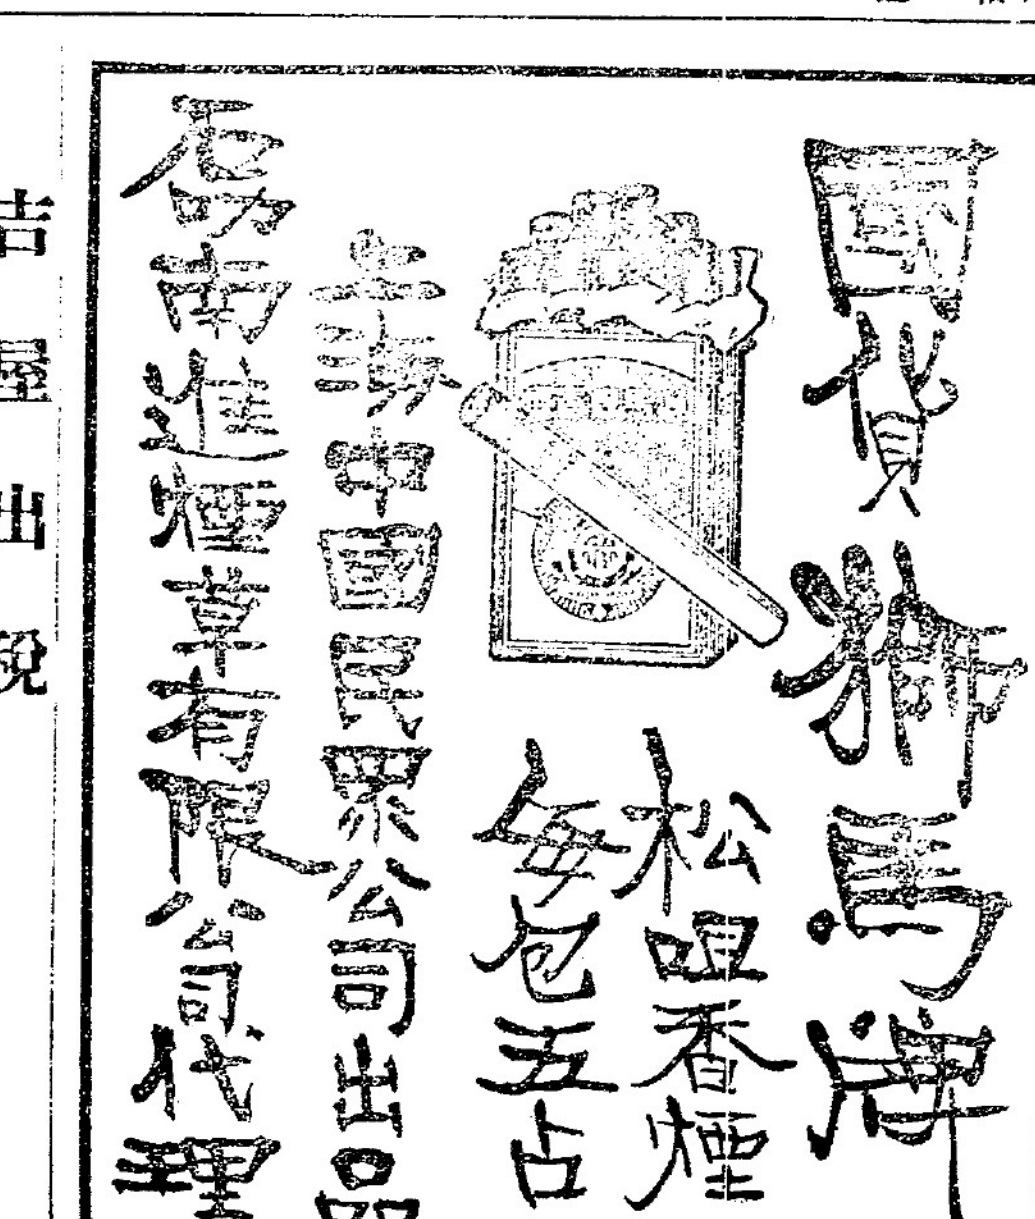 國貨獅馬牌
松咀香煙
每包五占
上海中國民眾公司出品
石叻南進煙草有限公司代理
吉屋出稅